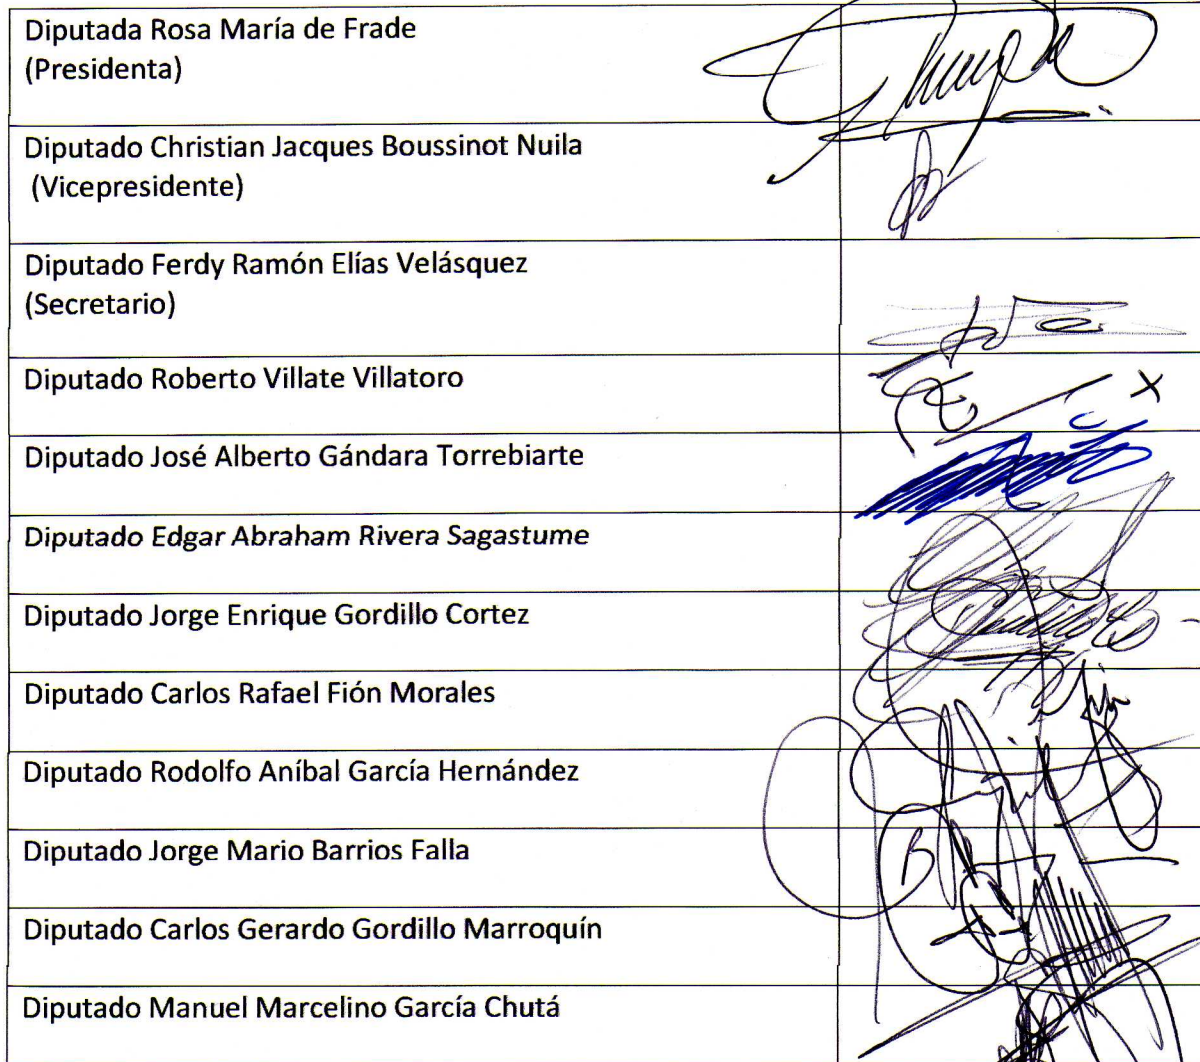 Diputada Rosa María de Frade
(Presidenta)
Diputado Christian Jacques Boussinot Nuila
(Vicepresidente)
Diputado Ferdy Ramón Elías Velásquez
(Secretario)
Diputado Roberto Villate Villatoro
Diputado José Alberto Gándara Torrebiarte
Diputado Edgar Abraham Rivera Sagastume
Diputado Jorge Enrique Gordillo Cortez
Diputado Carlos Rafael Fión Morales
Diputado Rodolfo Aníbal García Hernández
Diputado Jorge Mario Barrios Falla
Diputado Carlos Gerardo Gordillo Marroquín
Diputado Manuel Marcelino García Chutá